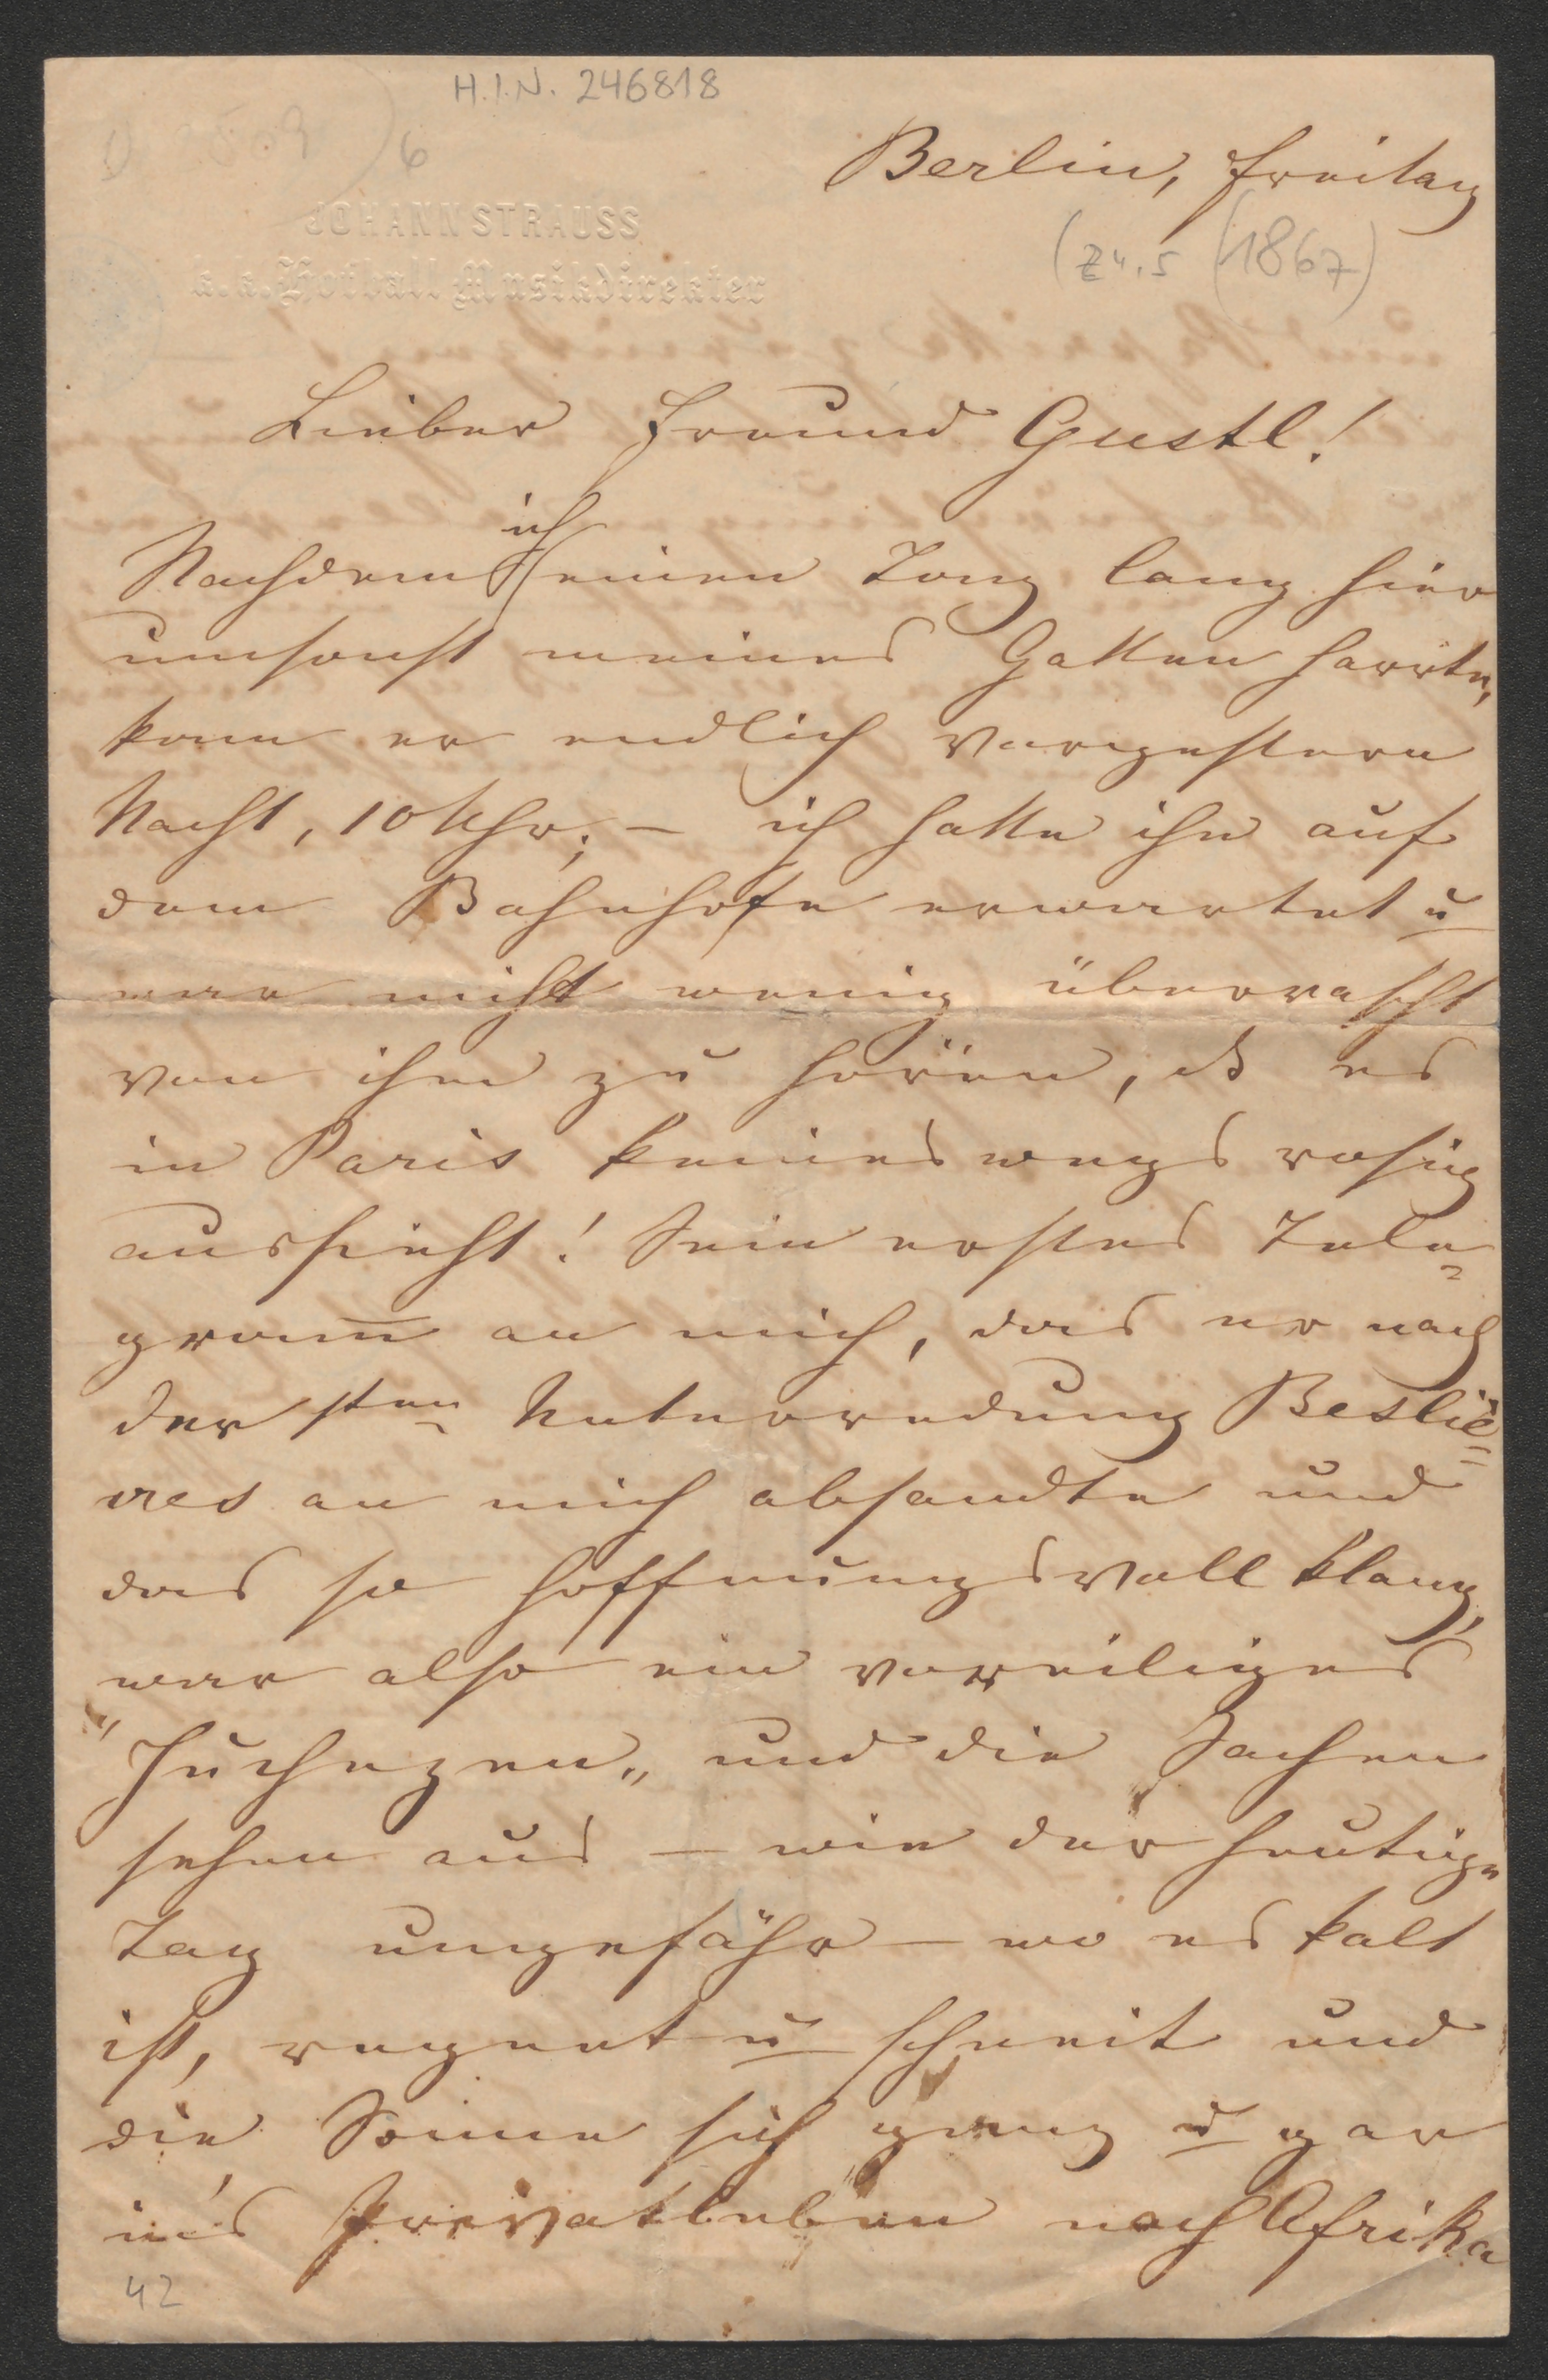 H.I.N. 246818
6
Berlin, Freitag
JOHANN STRAUSS
k. k. Hofball Musikdirektor
(1867)
Lieber Freund Gustl!
ich
Nachdem einen Tag lang hier
umsonst meines Gatten harrte,
kam er endlich vorgestern
Nacht, 10 Uhr; – ich hatte ihn auf
dem Bahnhofe erwartet u
war nicht wenig überrascht
von ihm zu hören, daß es
in Paris keineswegs rosig
aussieht! Sein erstes Tele-
gram̅ an mich, das er nach
der 1sten Unterredung Besliè=
res an mich absandte und
das so hoffnungsvoll klang,
war also ein voreiliges
"Juchezen" und die Sachen
sehen aus – wie der heutige
Tag ungefähr – wo es kalt
ist, regnet u schneit und
die Sonne sich ganz u gar
in's Privatleben nach Afrika
42